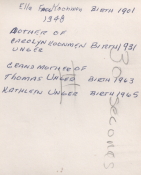 Ella BIRTH 1901
1948
MOTHER OF
CAROLYN KOONMEN BIRTH 1931
UNGER
GRAND MOTHER OF
THOMAS UNGER BIRTH 1963
KATHLEEN UNGER BIRTH 1965
SECONDS